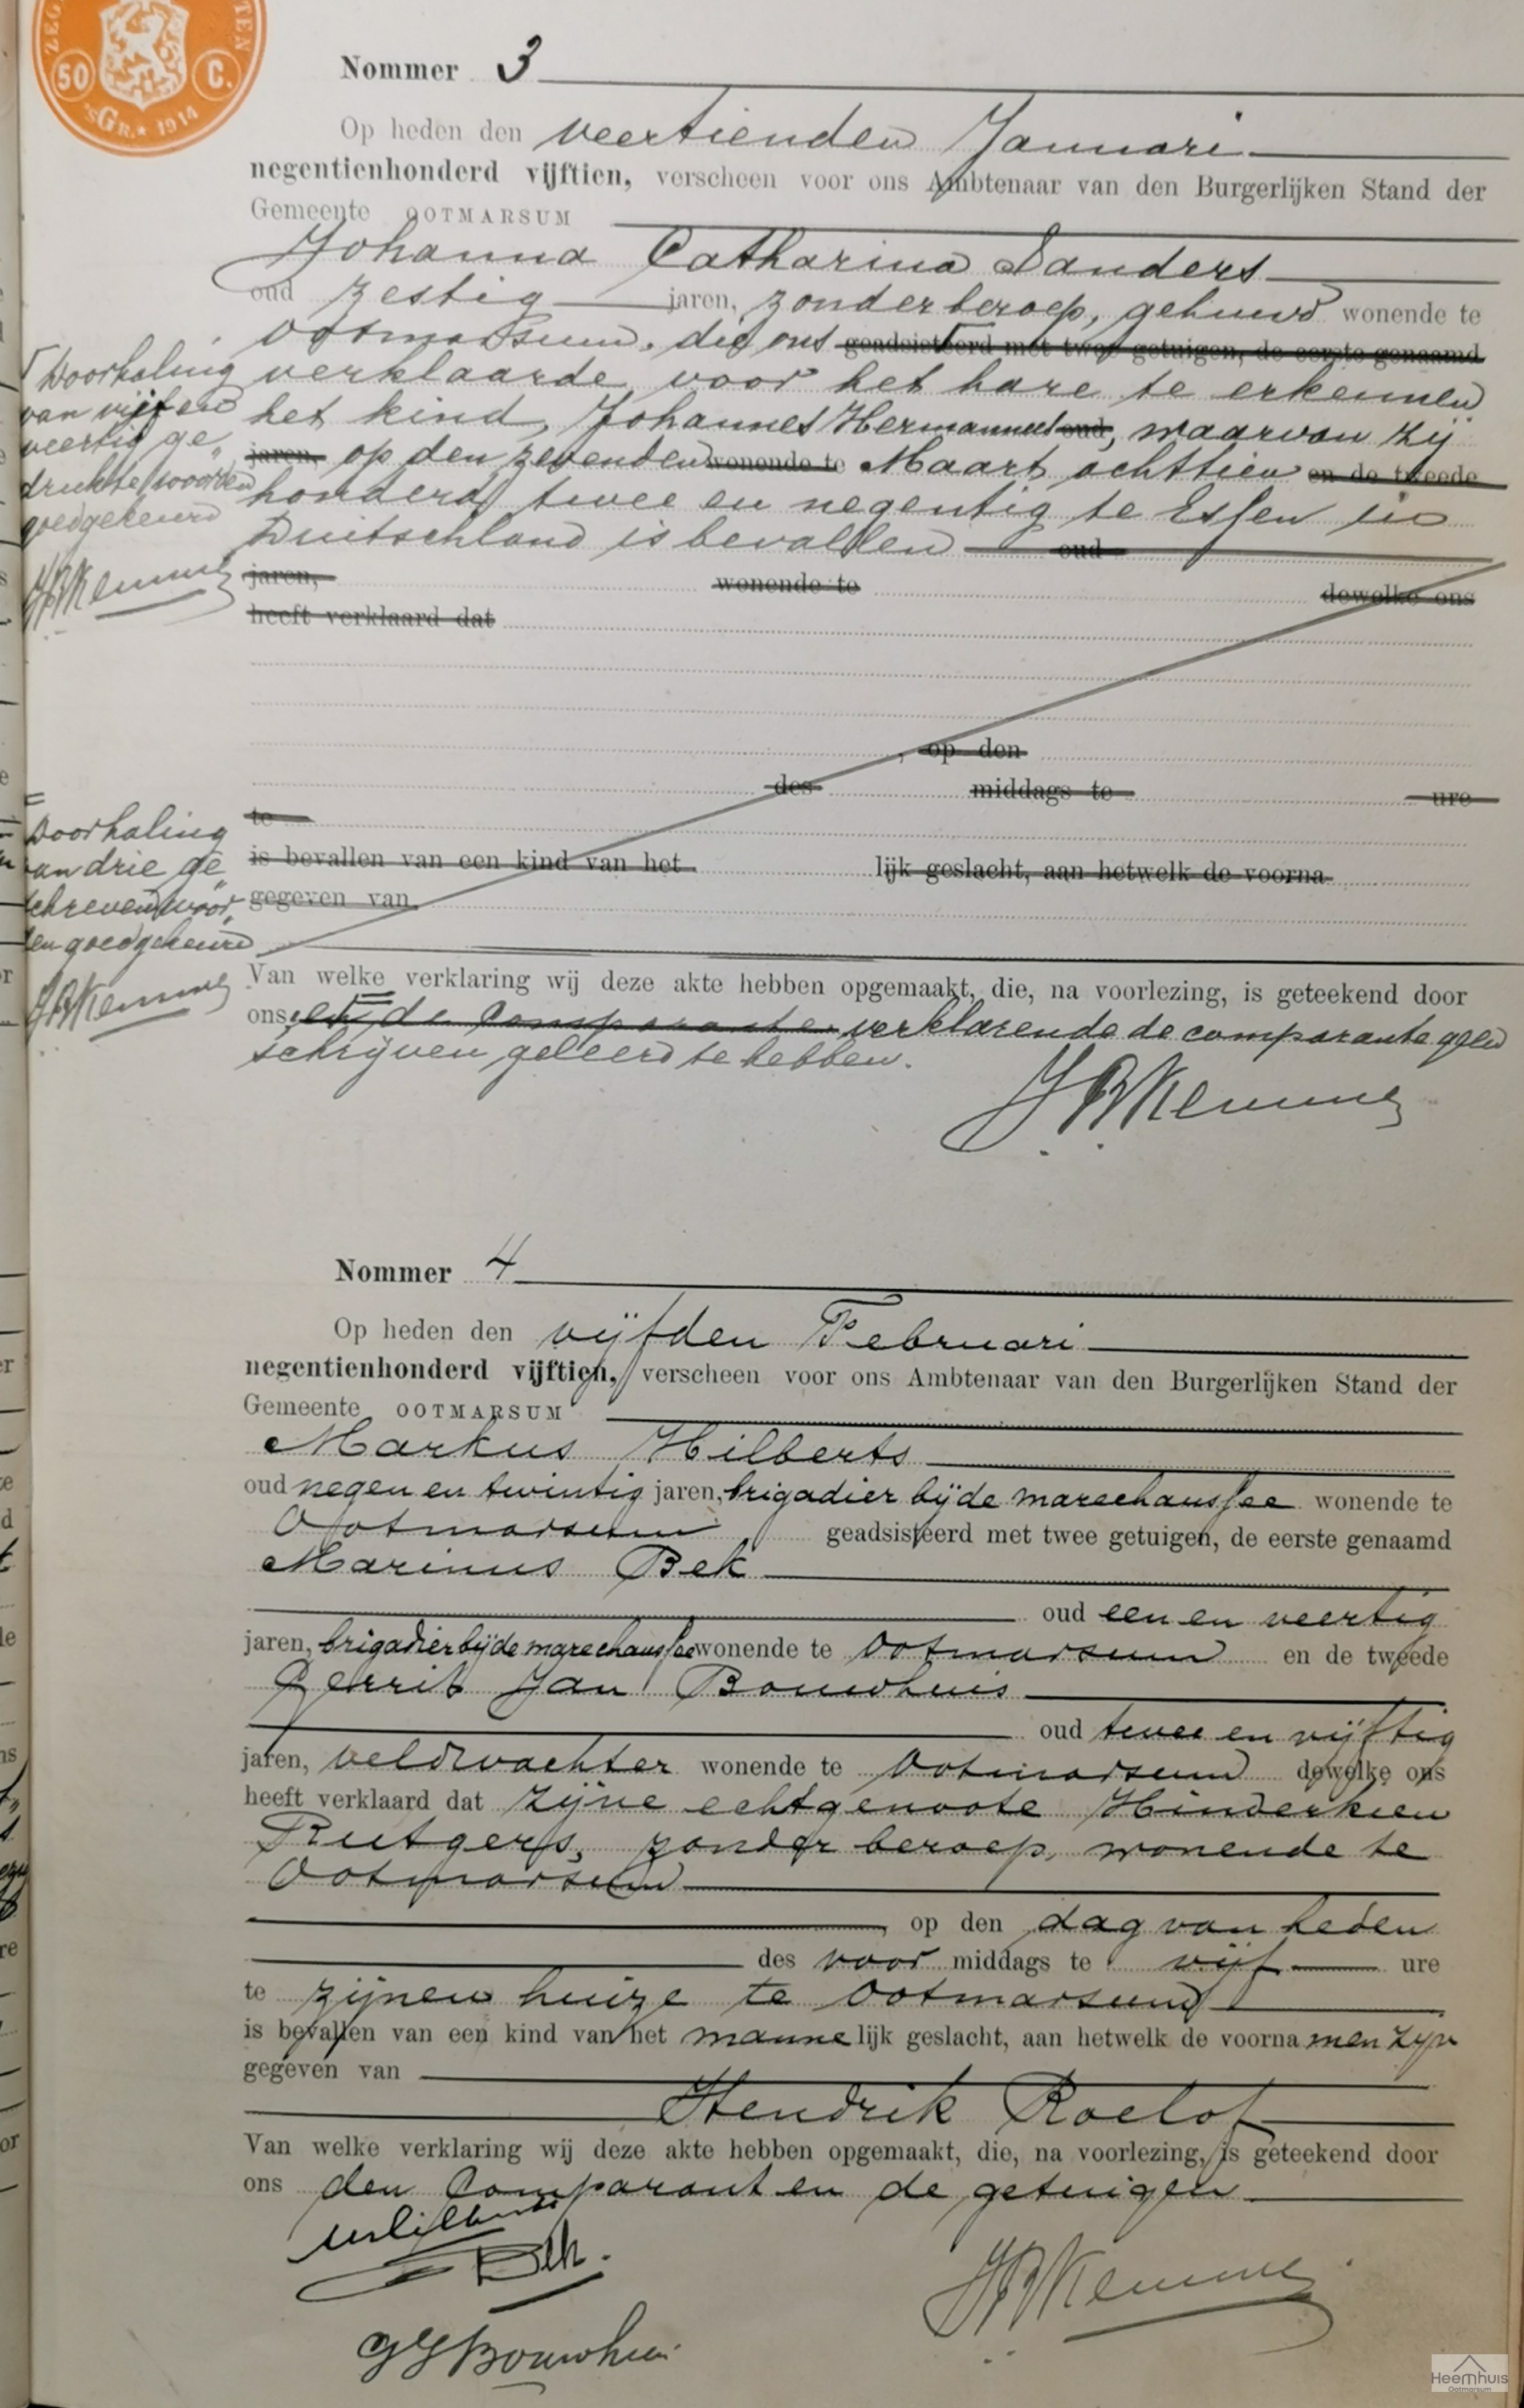 ZEG TEN
50 C.
'sGR.* 1914
Nommer 3
Op heden den veertienden Januari
negentienhonderd vijftien, verscheen voor ons Ambtenaar van den Burgerlijken Stand der
Gemeente OOTMARSUM
Johanna Catharina Sanders
oud zestig jaren, zonder beroep, gehuwd wonende te
Ootmarsum, die ons geadsisteerd met twee getuigen, de eerste genaamd
verklaarde voor het hare te erkennen
het kind, Johannes Hermannus oud, waarvan zij
jaren, op den zevenden wonende te Maart achttien en de tweede
honderd twee en negentig te Essen in
Duitschland is bevallen oud
jaren, wonende te dewelke ons
heeft verklaard dat
, op den
des middags te ure
te
is bevallen van een kind van het lijk geslacht, aan hetwelk de voorna
gegeven van
Van welke verklaring wij deze akte hebben opgemaakt, die, na voorlezing, is geteekend door
ons, en de Comparante verklarende de comparante geen
schrijven geleerd te hebben.
JBKemme
Doorhaling
van vijf en
veertig ge„
drukte woorden
goedgekeurd
JBKemme
Doorhaling
van drie ge„
schreven woor„
den goedgekeurd
JBKemme
Nommer 4
Op heden den vijfden Februari
negentienhonderd vijftien, verscheen voor ons Ambtenaar van den Burgerlijken Stand der
Gemeente OOTMARSUM
Markus Hilberts
oud negen en twintig jaren, brigadier bij de marechaussee wonende te
Ootmarsum geadsisteerd met twee getuigen, de eerste genaamd
Marinus Bek
oud een en veertig
jaren, brigadier bij de marechaussee wonende te Ootmarsum en de tweede
Gerrit Jan Bouwhuis
oud twee en vijftig
jaren, veldwachter wonende te Ootmarsum dewelke ons
heeft verklaard dat zijne echtgenoote Hinderkien
Rutgers, zonder beroep, wonende te
Ootmarsum
, op den dag van heden
des voor middags te vijf ure
te zijnen huize te Ootmarsum
is bevallen van een kind van het manne lijk geslacht, aan hetwelk de voorna men zijn
gegeven van
Hendrik Roelof
Van welke verklaring wij deze akte hebben opgemaakt, die, na voorlezing, is geteekend door
ons den Comparant en de getuigen
MHilberts
Bek.
JBKemme
GJBouwhuis
Heemhuis
Ootmarsum